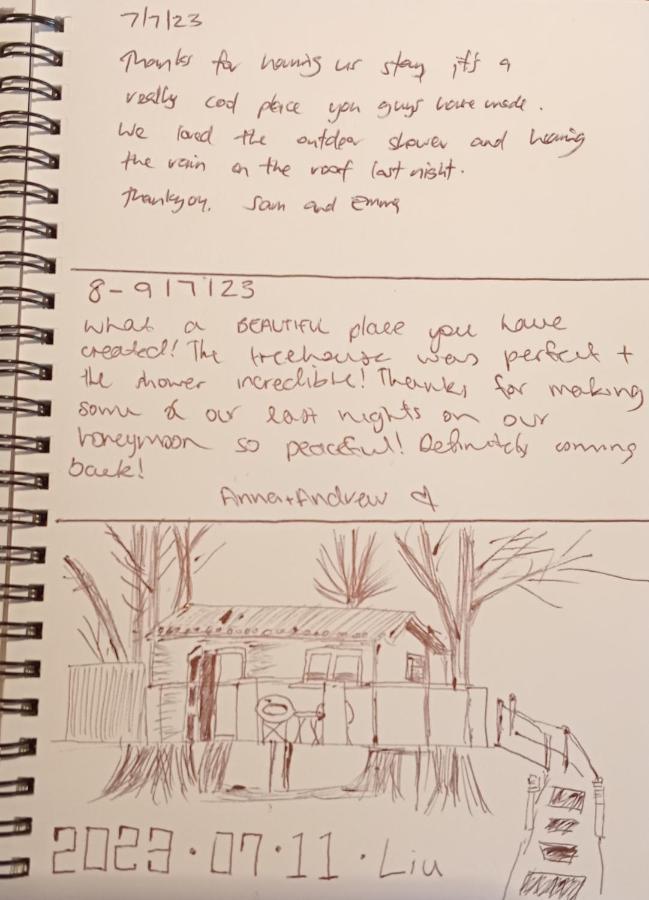 7/7/23
Thanks for having us stay, it's a
really cool place you guys have made.
We loved the outdoor shower and hearing
the rain on the roof last night.
Thankyou. Sam and Emma
8-9/7/23
What a BEAUTIFUL place you have
created! The treehouse was perfect +
the shower incredible! Thanks for making
some of our last nights on our
honeymoon so peaceful! Definitely coming
back!
Anna + Andrew
2023.07.11. Liu